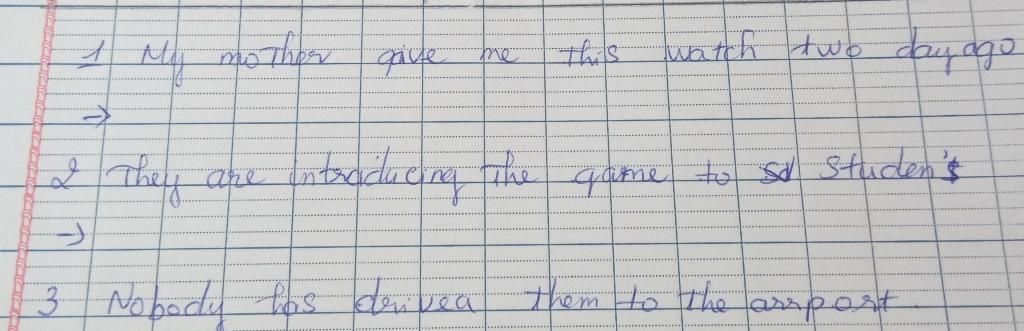 1 My mother give me this watch two day ago
→
2 They are intraducing the game to studen's
→
3 Nobody has derivea them to the arrport